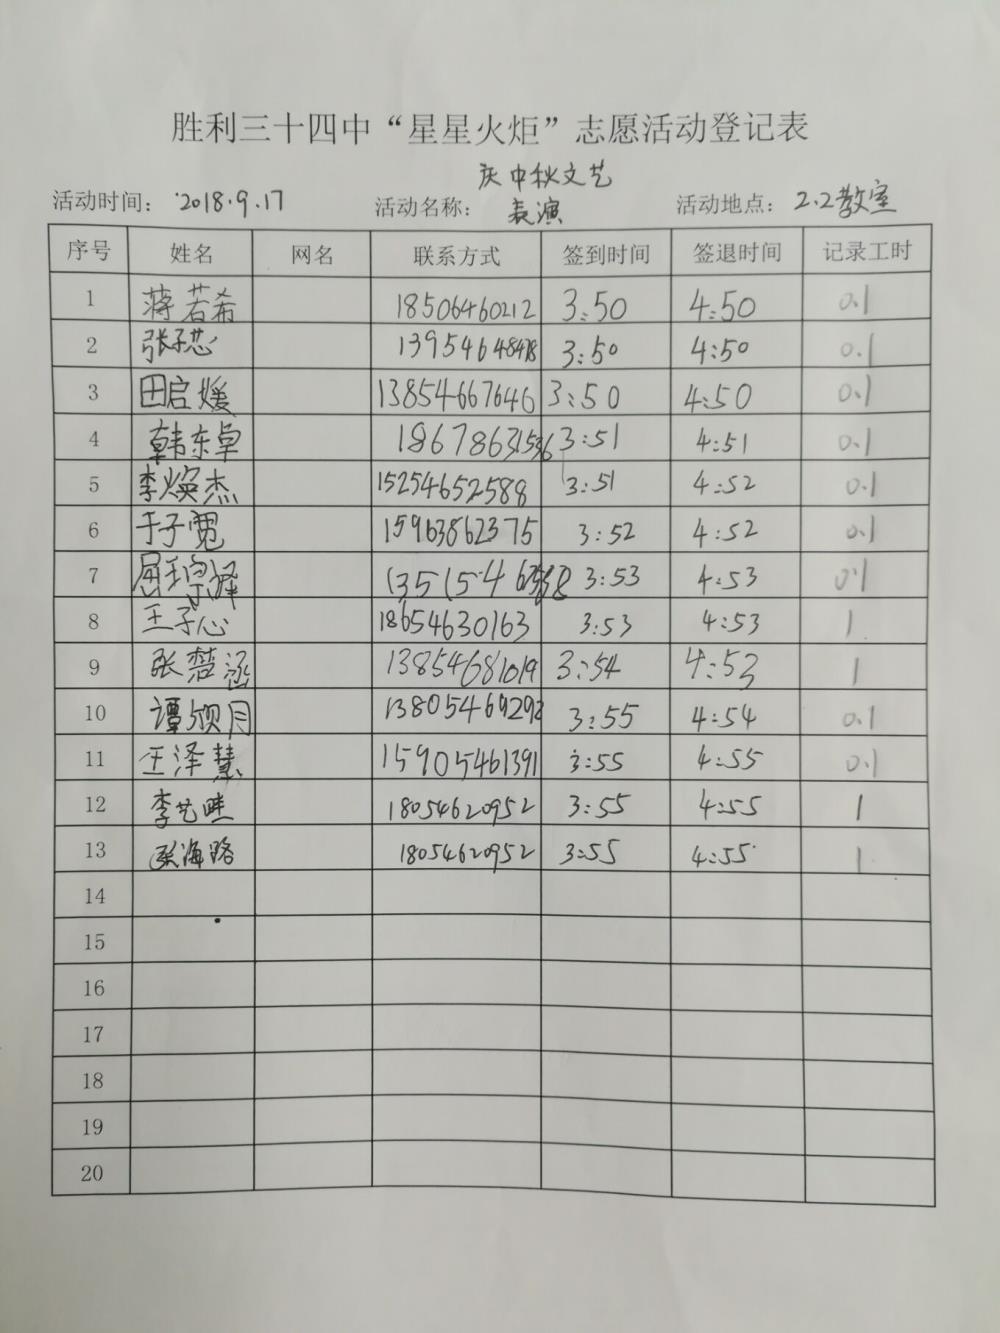 胜利三十四中“星星火炬”志愿活动登记表
活动时间: 2018.9.17 活动名称: 庆中秋文艺表演 活动地点: 2.2教室
序号 姓名 网名 联系方式 签到时间 签退时间 记录工时
1 蒋若希 18506460212 3:50 4:50 0.1
2 张子芯 3:50 4:50 0.1
3 田启媛 13854667646 3:50 4:50 0.1
4 韩东卓 18678631536 3:51 4:51 0.1
5 李焕杰 15254652588 3:51 4:52 0.1
6 于子霓 15963862375 3:52 4:52 0.1
7 3:53 4:53 0.1
8 王子心 18654630163 3:53 4:53 1
9 张楚涵 13854681019 3:54 4:53 1
10 谭颀月 13805469292 3:55 4:54 0.1
11 王泽慧 15905461391 3:55 4:55 0.1
12 李艺畦 18054620952 3:55 4:55 1
13 海路 18054620952 3:55 4:55 1
14
15
16
17
18
19
20